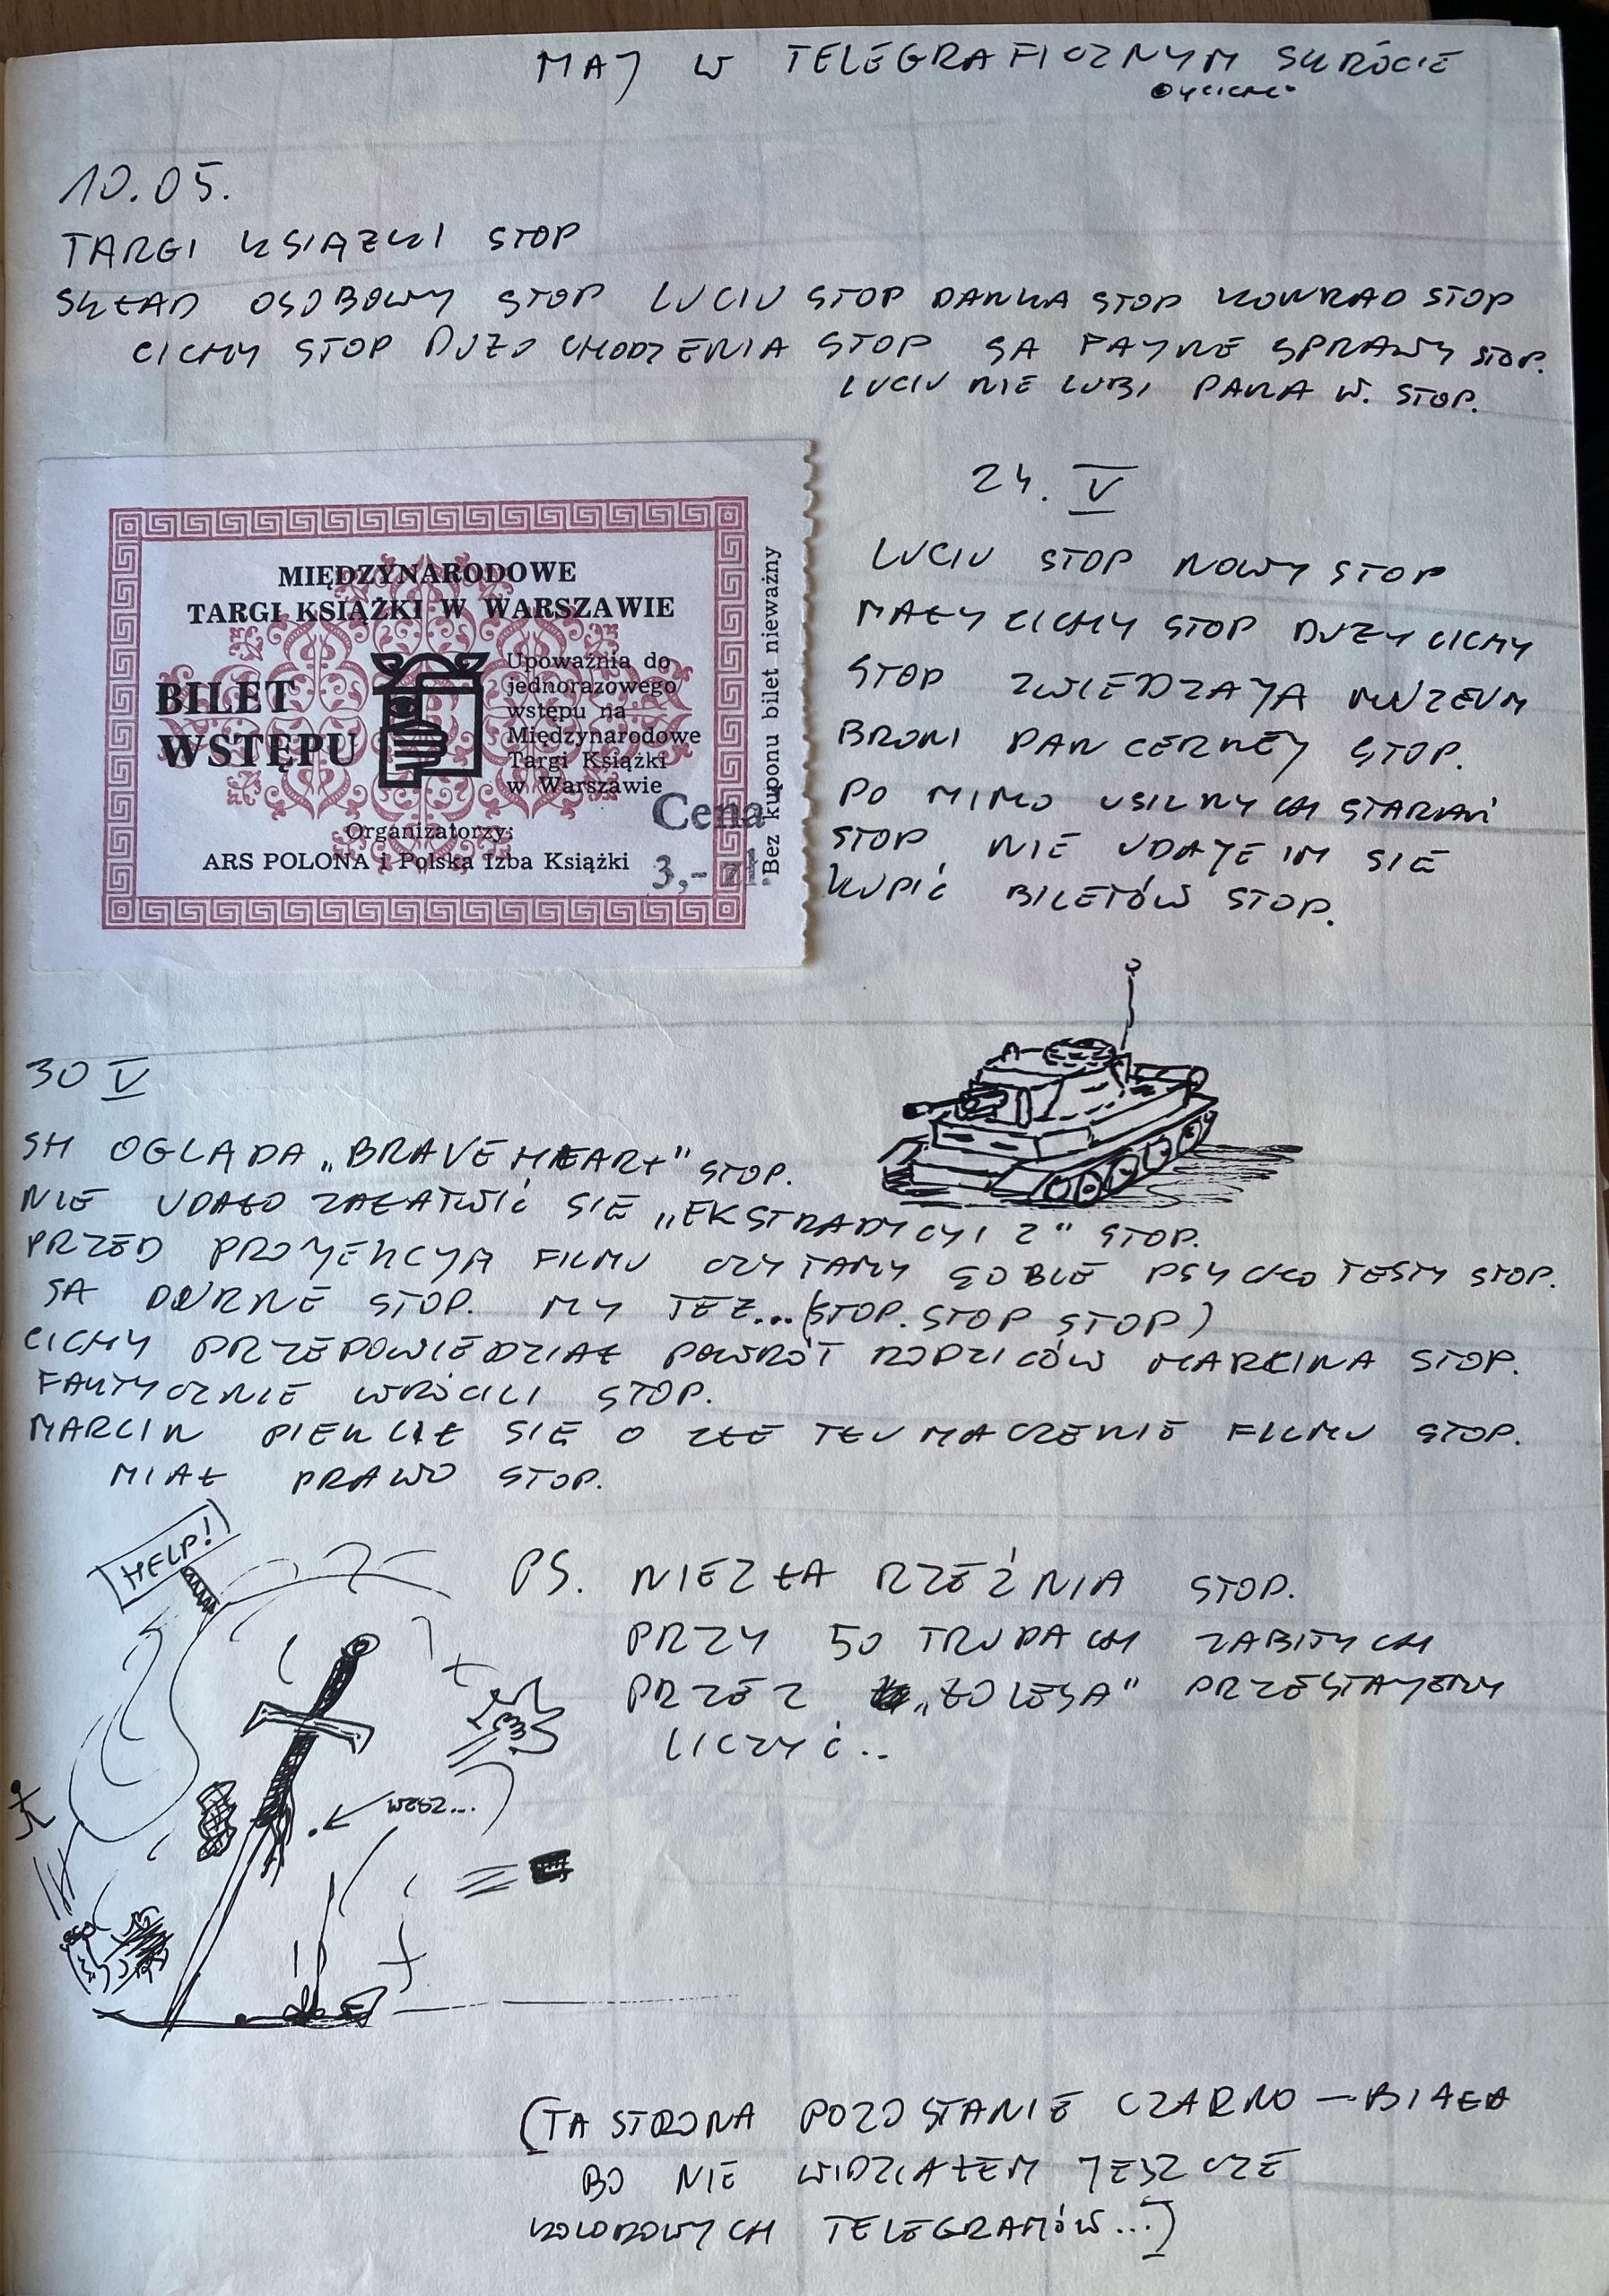 MAJ W TELEGRAFICZNYM SKRÓCIE
10.05.
TARGI KSIĄZKI STOP
SKŁAD OSOBOWY STOP LUCIU STOP DANKA STOP KONRAD STOP
CICHY STOP DUZO CHODZENIA STOP SA FAJNE SPRAWY STOP.
LUCIU NIE LUBI PANA W. STOP.
MIĘDZYNARODOWE
TARGI KSIĄŻKI W WARSZAWIE
BILET
WSTĘPU
Upoważnia do
jednorazowego
wstępu na
Międzynarodowe
Targi Książki
w Warszawie
Cena
3,- zł.
Organizatorzy:
ARS POLONA i Polska Izba Książki
Bez kuponu bilet nieważny
24. V
LUCIU STOP NOWY STOP
MAŁY CICHY STOP DUZY CICHY
STOP ZWIEDZAJA MUZEUM
BRONI PANCERNEJ STOP.
PO MIMO USILNYCH STARAŃ
STOP, NIE UDAJE IM SIE
KUPIĆ BILETÓW STOP.
30 V
SH OGLADA „BRAVE HEART" STOP.
NIE UDAŁO ZAŁATWIĆ SIE „EKSTRADYCJI 2" STOP.
PRZED PROJEKCJA FILMU CZYTAMY SOBIE PSYCHOTESTY STOP.
SA DURNE STOP. MY TEZ...(STOP. STOP STOP)
CICHY PRZEPOWIEDZIAŁ POWRÓT RODZICÓW MARCINA STOP.
FAKTYCZNIE WRÓCILI STOP.
MARCIN PIEKLIŁ SIE O ZŁE TŁUMACZENIE FILMU STOP.
MIAŁ PRAWO STOP.
HELP!
PS. NIEZŁA RZEŹNIA STOP.
PRZY 50 TRUPACH ZABITYCH
PRZEZ „ŁOLESA" PRZESTAJEMY
LICZYĆ..
WESZ...
(TA STRONA POZOSTANIE CZARNO-BIAŁA
BO NIE WIDZIAŁEM JESZCZE
KOLOROWYCH TELEGRAMÓW...)